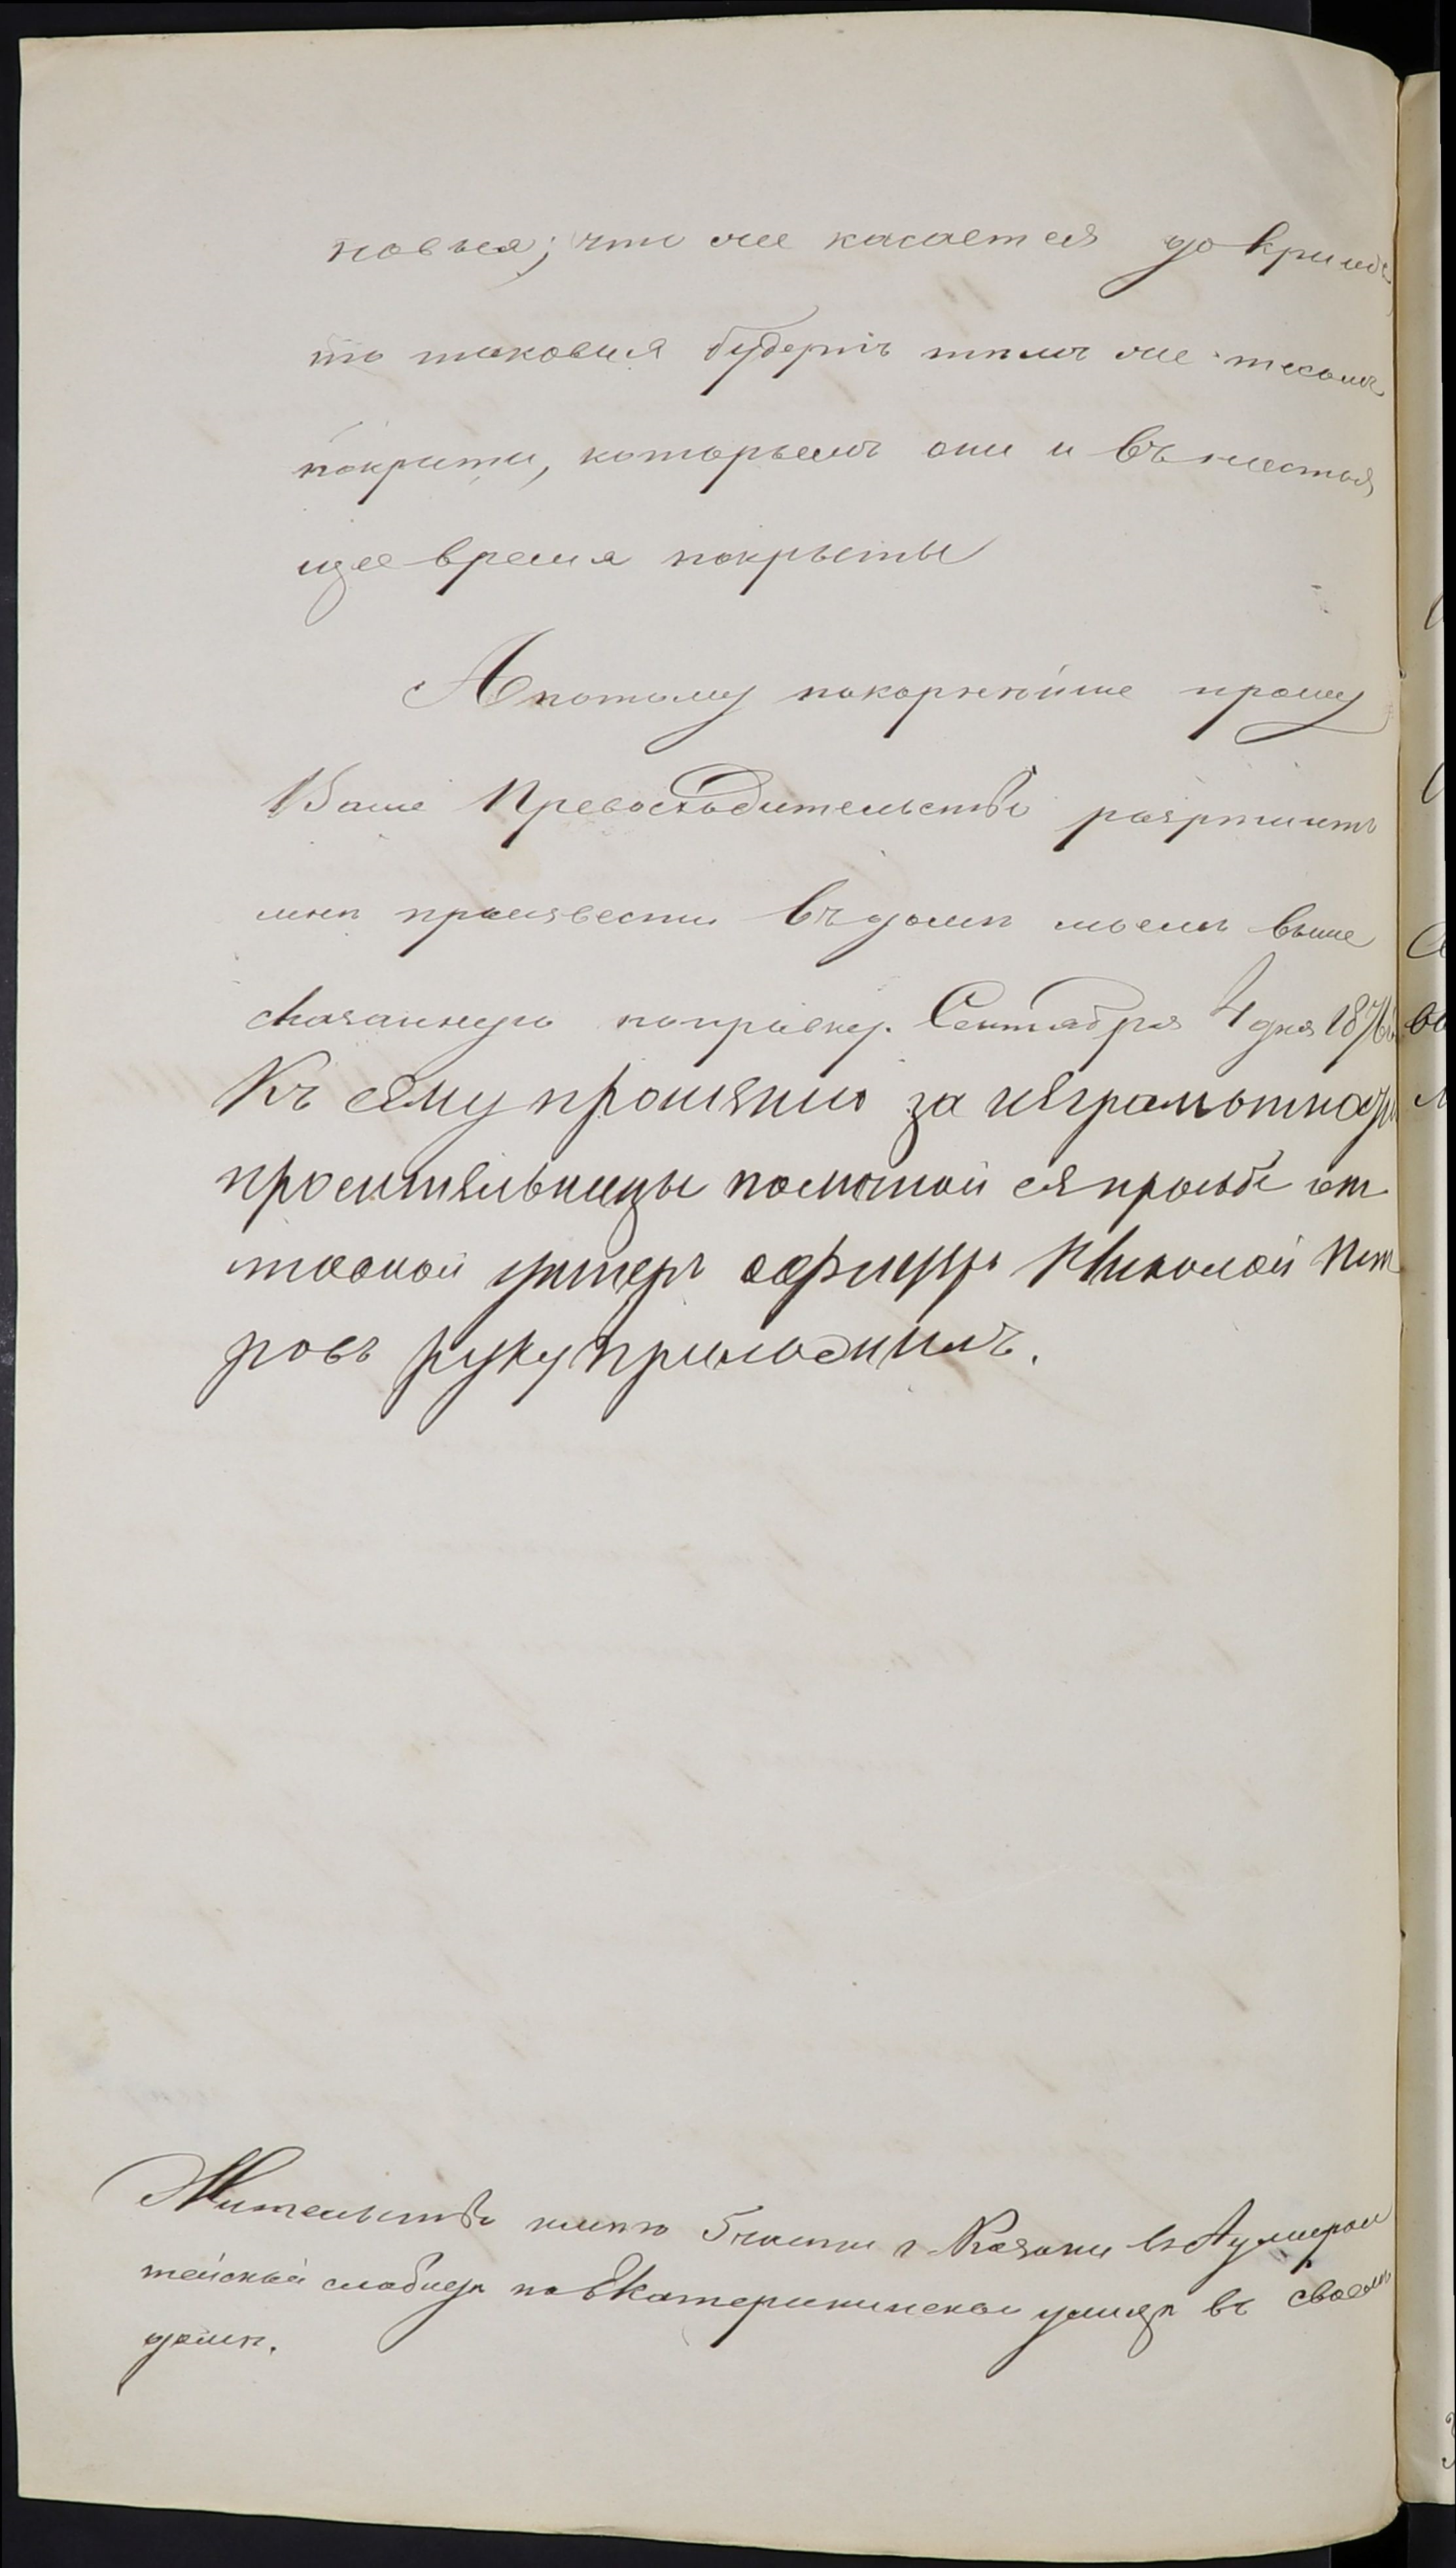 новыя; что же касается до крыши
то таковыя будетъ тѣмъ же тесомъ
покрити, которымъ они и въ настоя
щее время покрыты
А потому покорнѣйше прошу
Ваше Превосходительство разрѣшить
мнѣ произвести въ домѣ моемъ выше
сказанную поправку. Сентября 4 дня 1876
Къ сему прошению за неграмотнос
просительницы по личной ея прозьбе от
тавной унтеръ офицеръ Николай Пет
ровъ руку приложилъ.
Жительство имѣю 5 части г. Казани въ Адмирал
тейской слободѣ по Екатерининской улицѣ въ своемъ
домѣ.